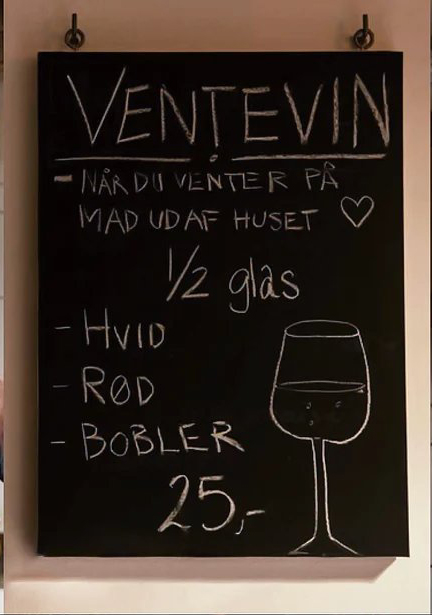 VENTEVIN
- NÅR DU VENTER PÅ
MAD UD AF HUSET ♡
1/2 glas
- HVID
- RØD
- BOBLER
25,-